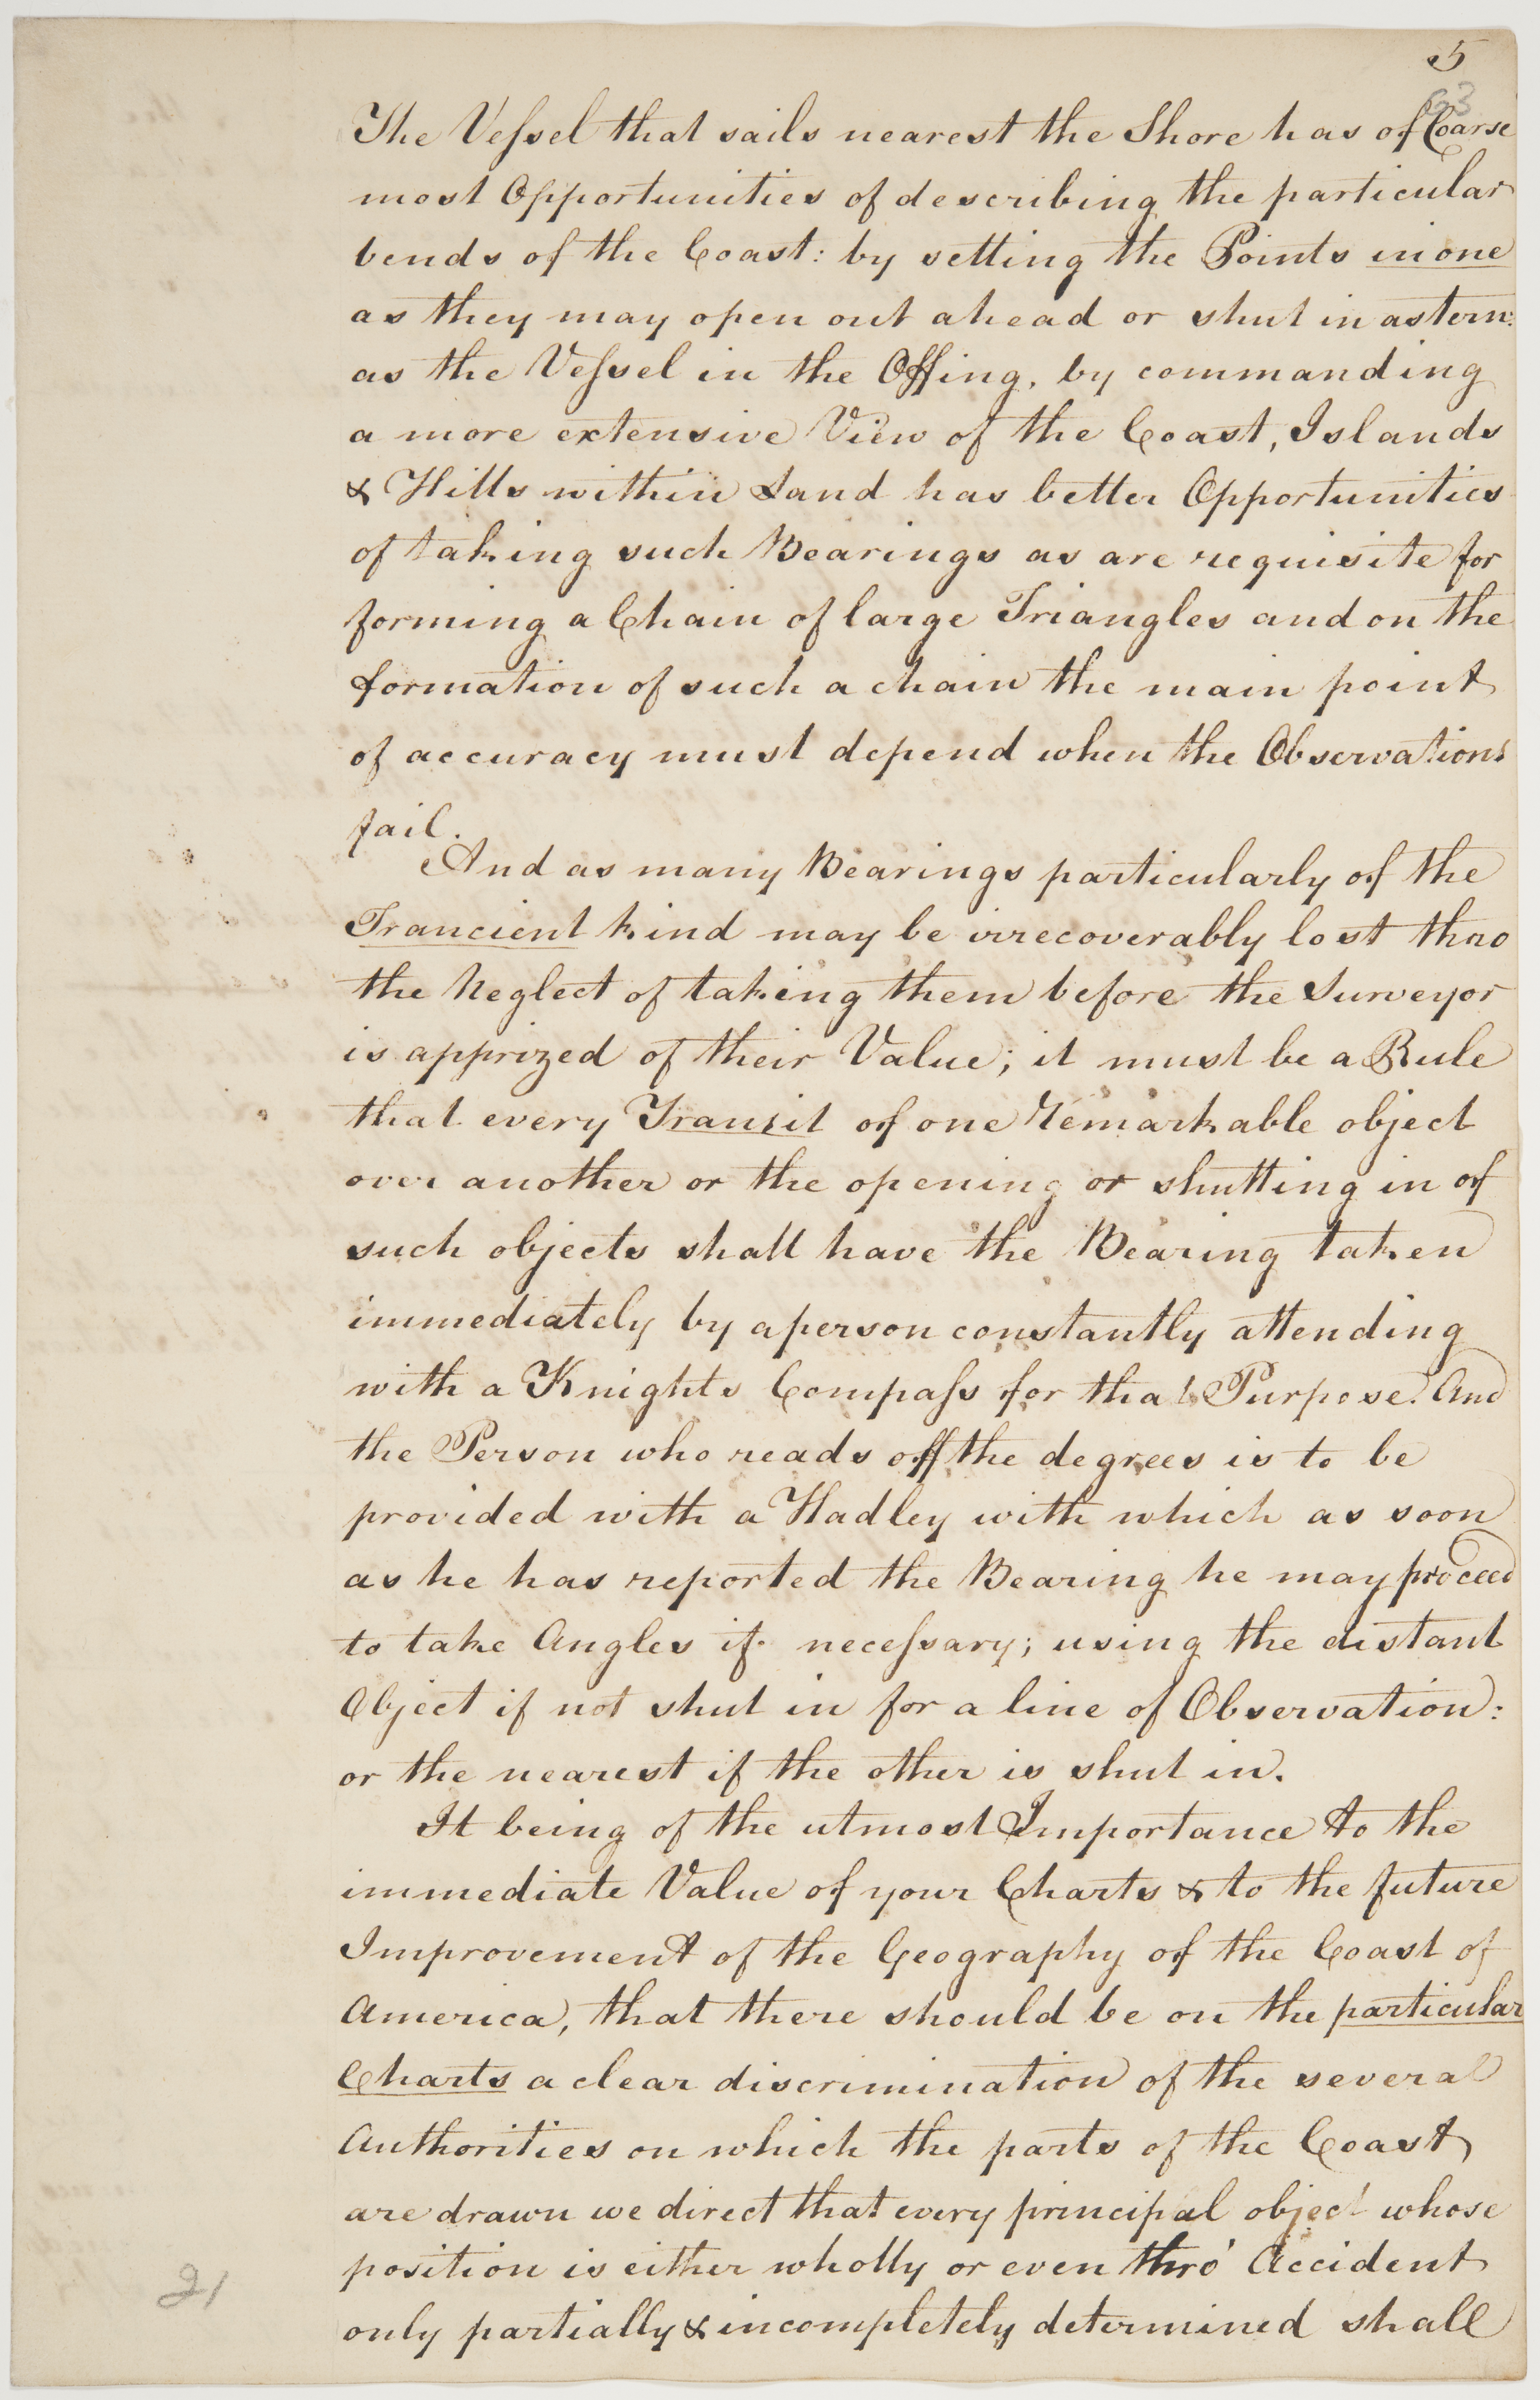 5
63
The Vessel that sails nearest the Shore has of Coarse
most Opportunities of describing the particular
bends of the Coast: by setting the Points in one
as they may open out ahead or shut in astern:
as the Vessel in the Offing, by commanding
a more extensive View of the Coast, Islands
& Hills within Land has better Opportunities
of taking such Bearings as are requisite for
forming a Chain of large Triangles and on the
formation of such a chain the main point
of accuracy must depend when the Observations
fail.
And as many Bearings particularly of the
Trancient kind may be irrecoverably lost thro
the Neglect of taking them before the Surveyor
is apprized of their Value; it must be a Rule
that every Transit of one remarkable object
over another or the opening or shutting in of
such objects shall have the Bearing taken
immediately by a person constantly attending
with a Knights Compass for that Purpose. And
the Person who reads off the degrees is to be
provided with a Hadley with which as soon
as he has reported the Bearing he may proceed
to take Angles if necessary; using the distant
Object if not shut in for a line of Observation:
or the nearest if the other is shut in.
It being of the utmost Importance to the
immediate Value of your Charts & to the future
Improvement of the Geography of the Coast of
America, that there should be on the particular
Charts a clear discrimination of the several
Authorities on which the parts of the Coast
are drawn we direct that every principal object whose
position is either wholly or even thro' Accident
only partially & incompletely determined shall
21